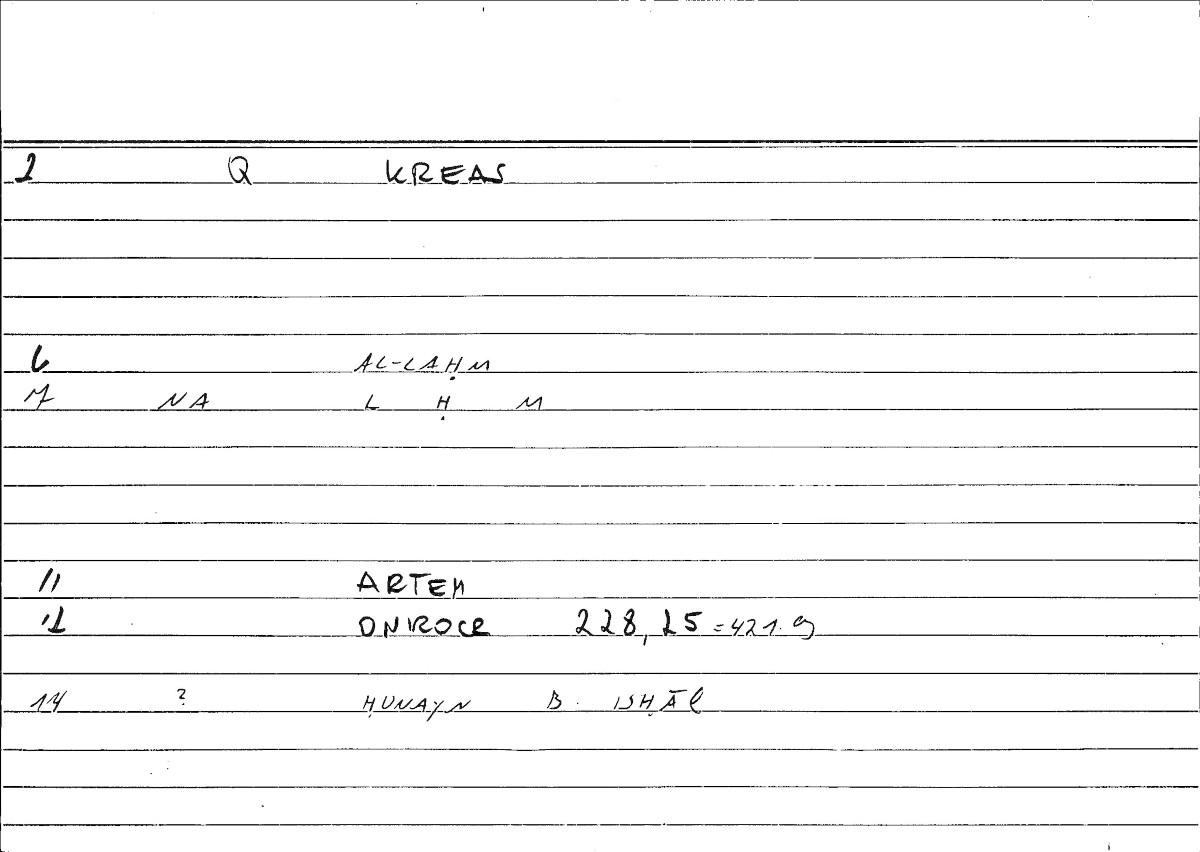 1 Q KREAS
6 AL-LAḤM
7 NA L Ḥ M
11 ARTEM
12 ONIROCR 228,25=421.9
14 ? ḤUNAYN B. ISḤĀQ